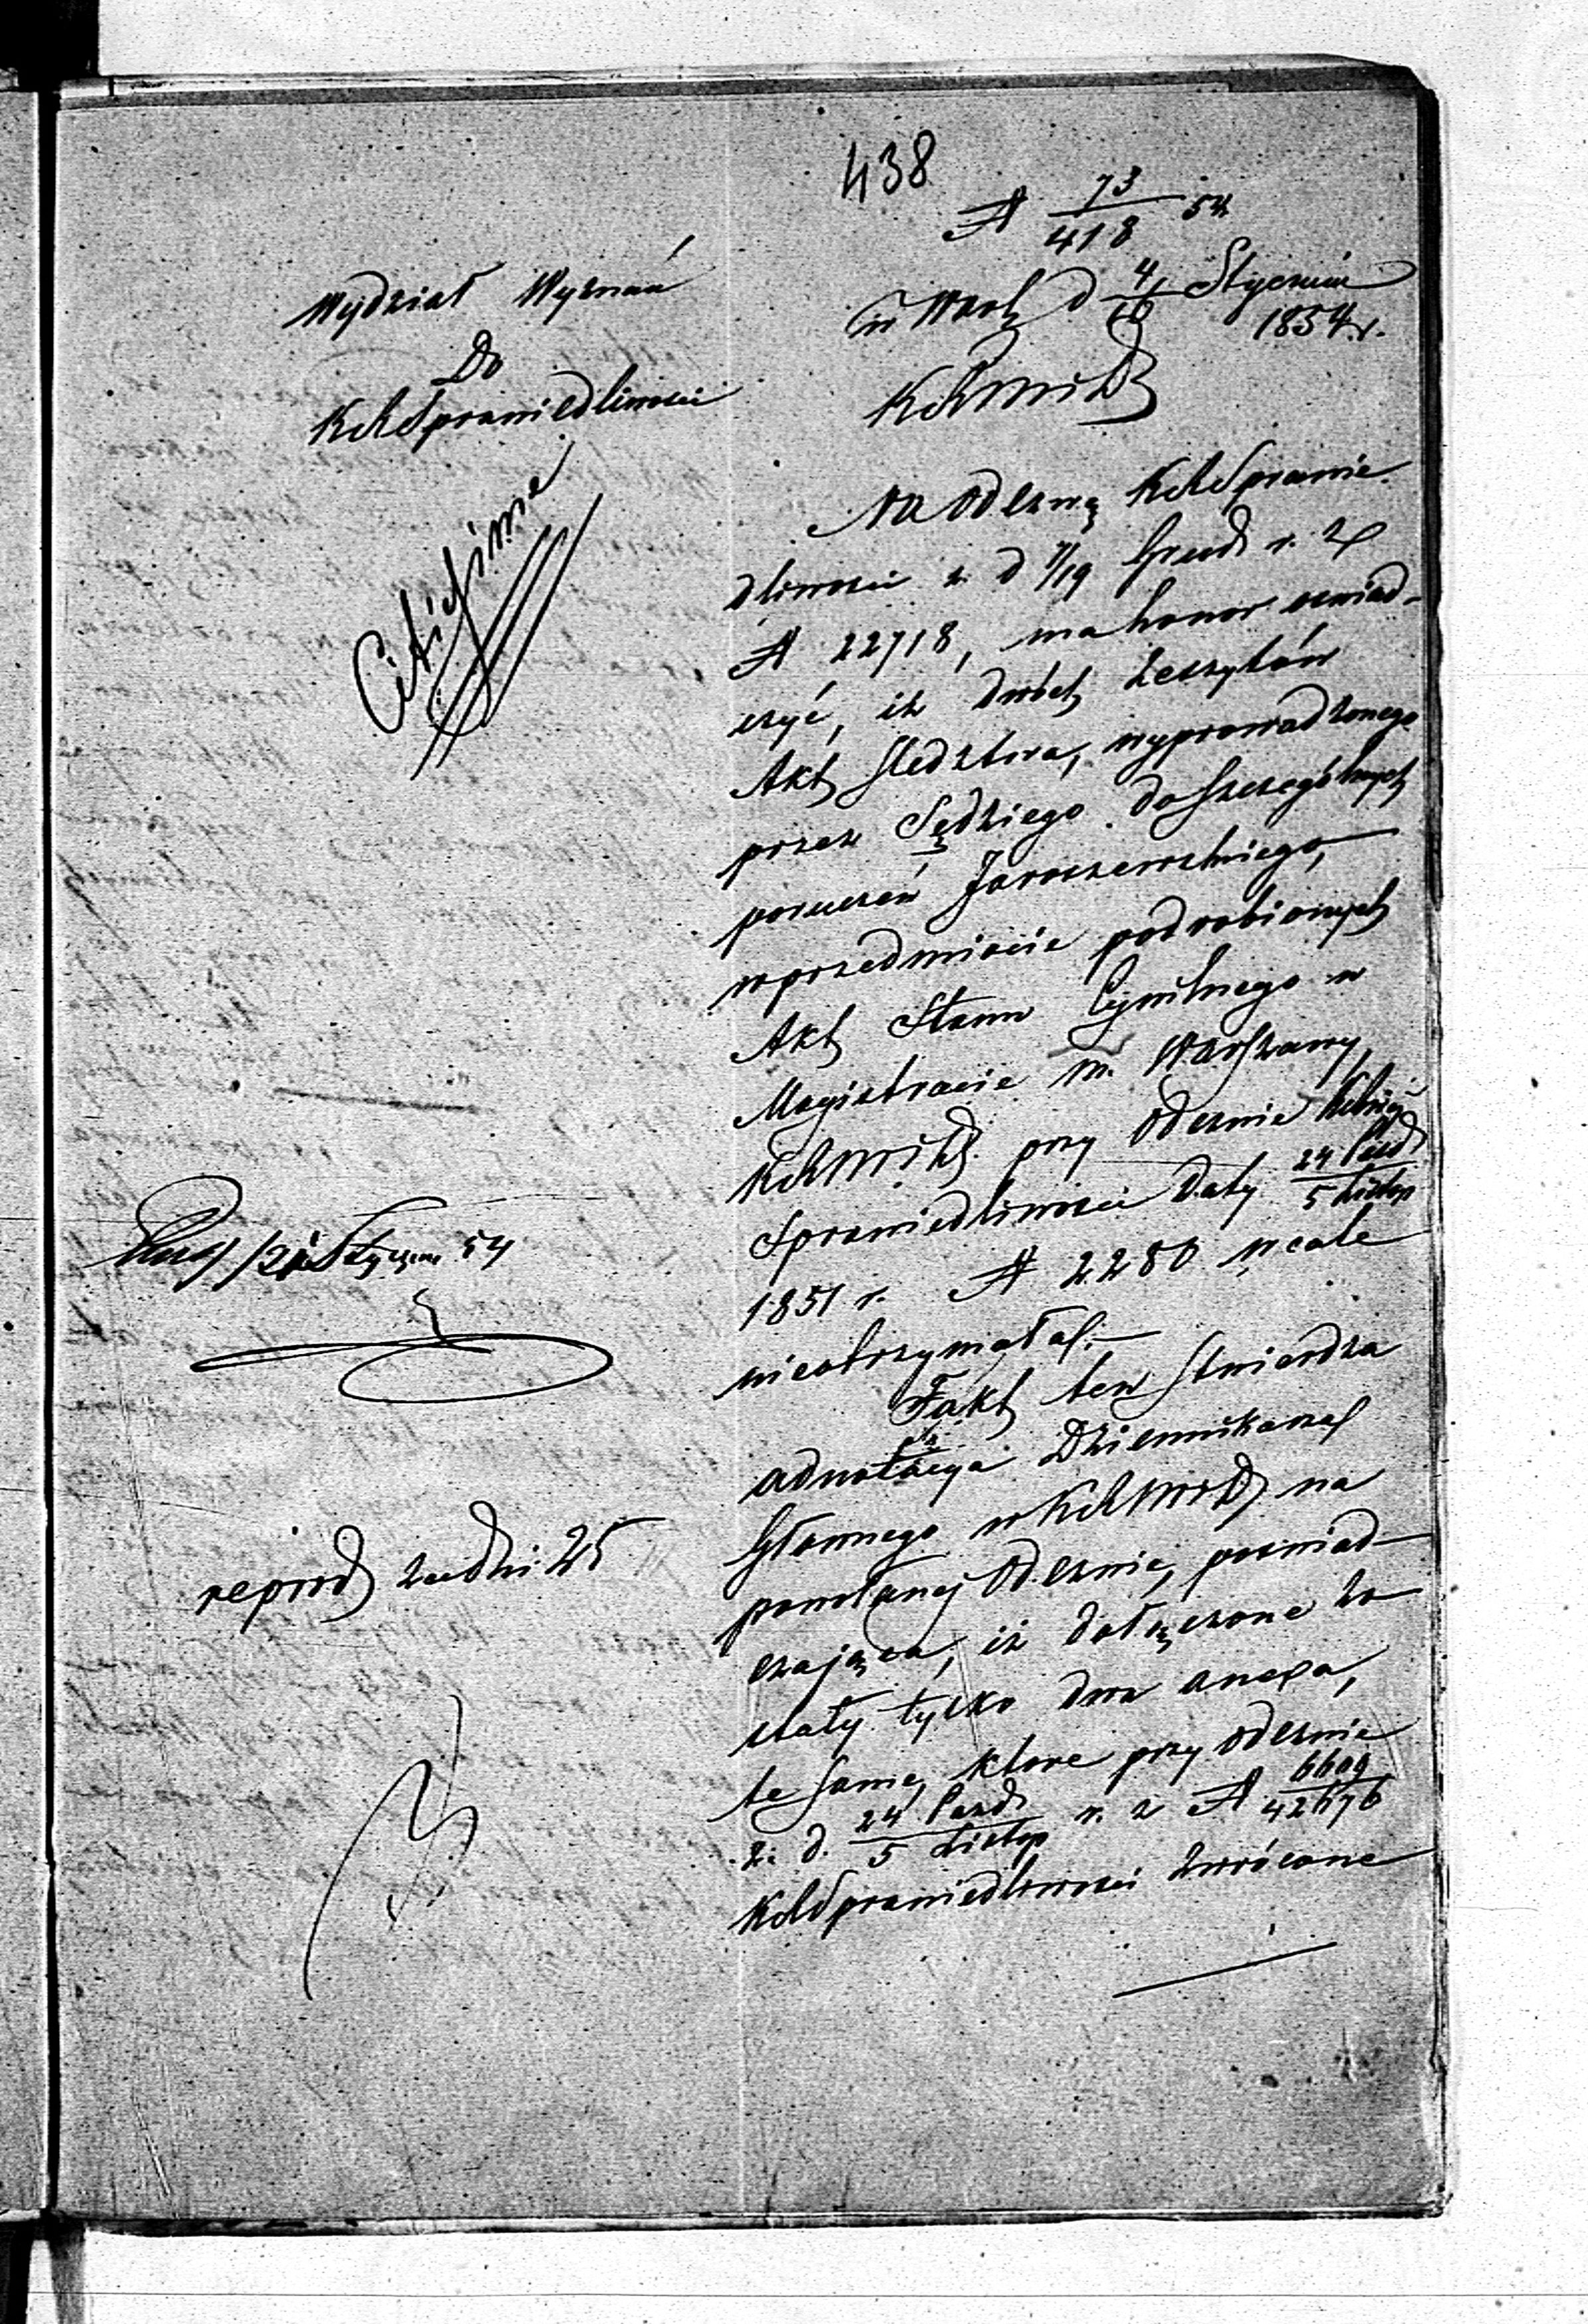 438
N 73/418 54
Wydział Wyznań
Do
KRSprawiedliwości
w Warsz d 4/16 Stycznia
1854 r.
KRSWiD
Citissime
Na Odezwę KRSprawie-
dliwości z d 7/19 Grud r. z
N 22718, ma honor oświad-
czyć, iż dwóch zeszytów
Akt śledztwa, wyprowadzonego
przez Sędziego do szczególnych
poruczeń Jaroszewskiego,
w przedmiocie podrobionych
Akt Stanu Cywilnego w
Magistracie m. Warszawy,
KRSWiD przy Odezwie
Sprawiedliwości daty 24 Pazd/5 Listop
1851 r. N 2280 wcale
nieotrzymała.—
Fakt ten stwierdza
adnotacya Dziennikarza
Głownego w KRSWiD na
powołanej Odezwie, poświad-
czająca, iż dołączone zo
stały tylko dwa anexa,
te same, które przy Odezwie
z d. 24 Pazd/5 Listop r. z N 6609/42676
KRSprawiedliwości zwrócone
Stycznia 54
reprod 25